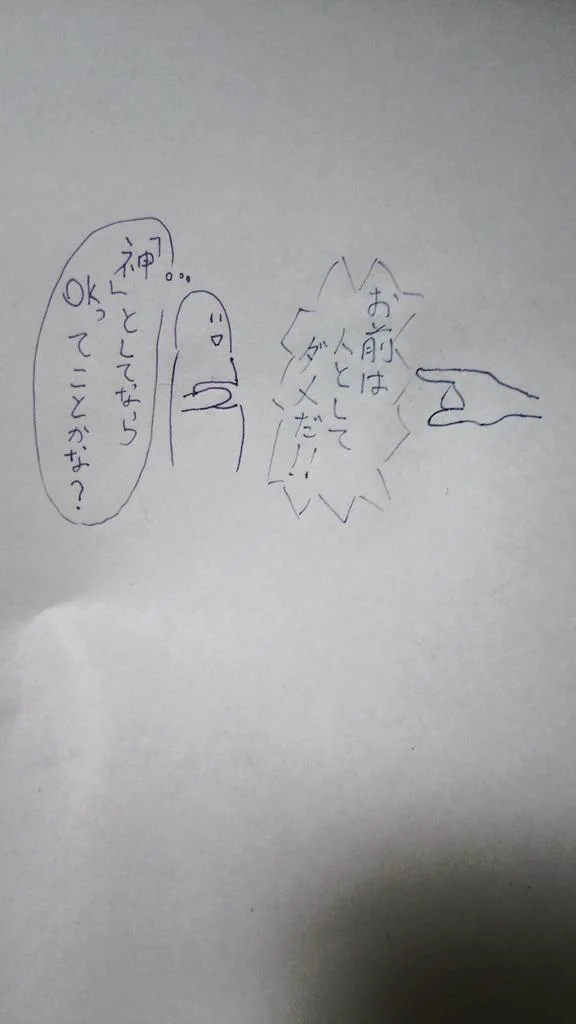 お前は
人として
ダメだ!!
…「神」としてなら
OKってことかな?